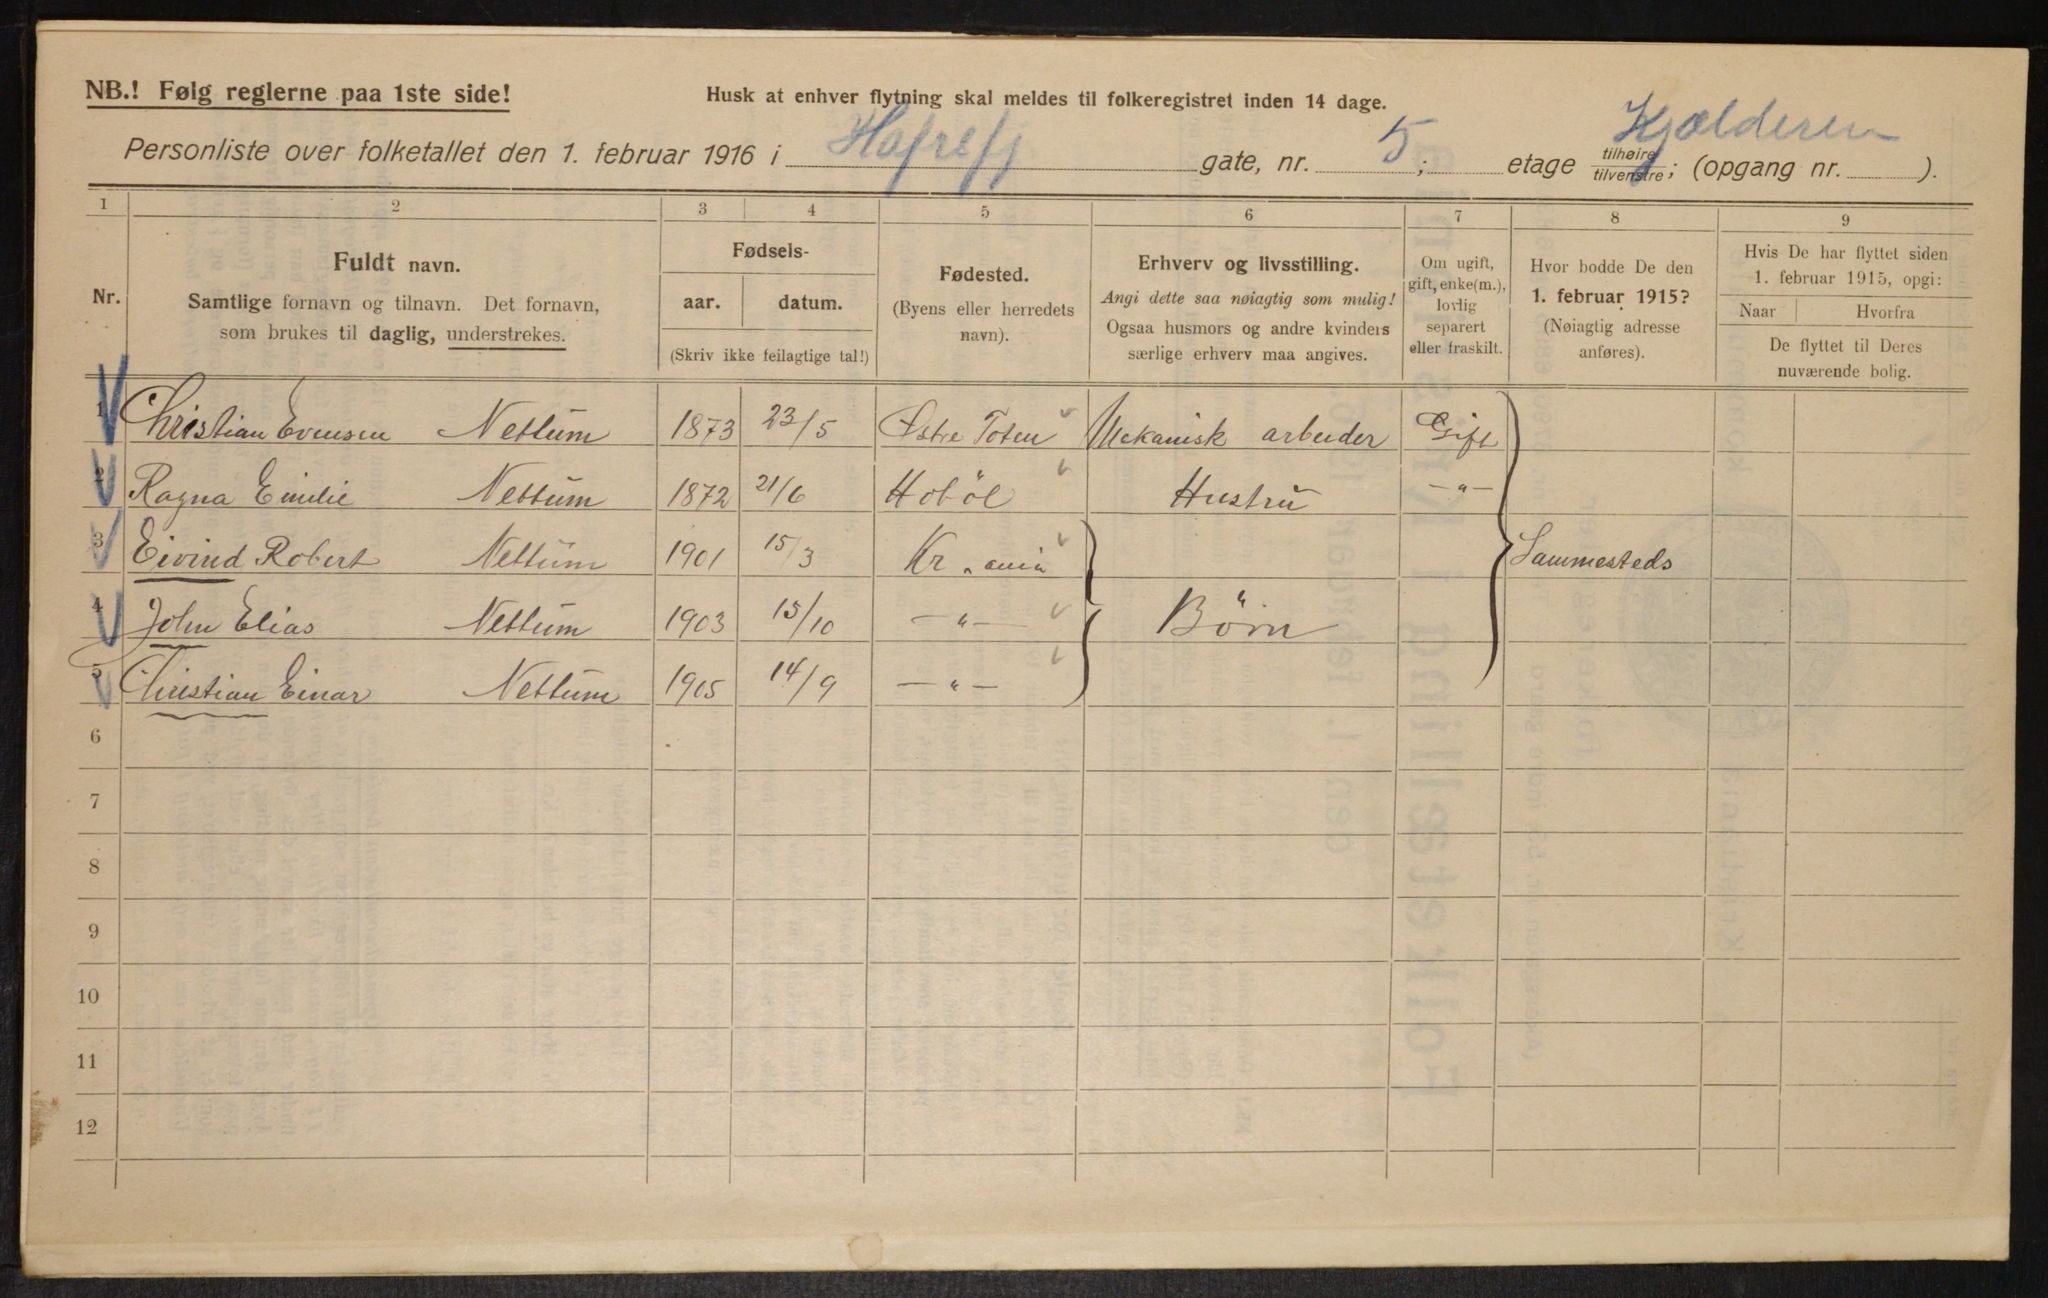 NB.! Følg reglerne paa 1ste side!
Husk at enhver flytning skal meldes til folkeregistret inden 14 dage.
Personliste over folketallet den 1. februar 1916 i Hafrsfj gate, nr. 5; etage tilhøire tilvenstre; (opgang nr. ). Kjælderen
1 2 3 4 5 6 7 8 9
Nr.
Fuldt navn.
Samtlige fornavn og tilnavn. Det fornavn,
som brukes til daglig, understrekes.
Fødsels-
aar. datum.
(Skriv ikke feilagtige tal!)
Fødested.
(Byens eller herredets
navn).
Erhverv og livsstilling.
Angi dette saa nøiagtig som mulig!
Ogsaa husmors og andre kvinders
særlige erhverv maa angives.
Om ugift,
gift, enke(m.),
lovlig
separert
eller fraskilt.
Hvor bodde De den
1. februar 1915?
(Nøiagtig adresse
anføres).
Hvis De har flyttet siden
1. februar 1915, opgi:
Naar Hvorfra
De flyttet til Deres
nuværende bolig.
1 Christian Evensen Nettum 1873 23/5 Østre Toten Mekanisk arbeider Gift
2 Ragna Emilie Nettum 1872 21/6 Hobøl Hustru -"-
3 Eivind Robert Nettum 1901 15/3 Kr.ania Sammesteds
4 John Elias Nettum 1903 15/10 -"- Børn
5 Christian Einar Nettum 1905 14/9 -"-
6
7
8
9
10
11
12